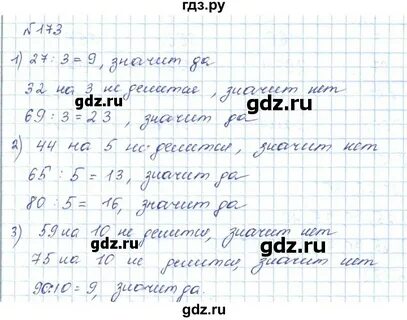 гдз.ру
№173
1) 27 : 3 = 9, значит да
32 на 3 не делится, значит нет
69 : 3 = 23, значит да
2) 44 на 5 не делится, значит нет
65 : 5 = 13, значит да
80 : 5 = 16, значит да
3) 59 на 10 не делится, значит нет
75 на 10 не делится, значит нет
90:10 = 9, значит да.
gdz.ru
gdz.ru
gdz.ru
gdz.ru
gdz.ru
gdz.ru
gdz.ru
gdz.ru